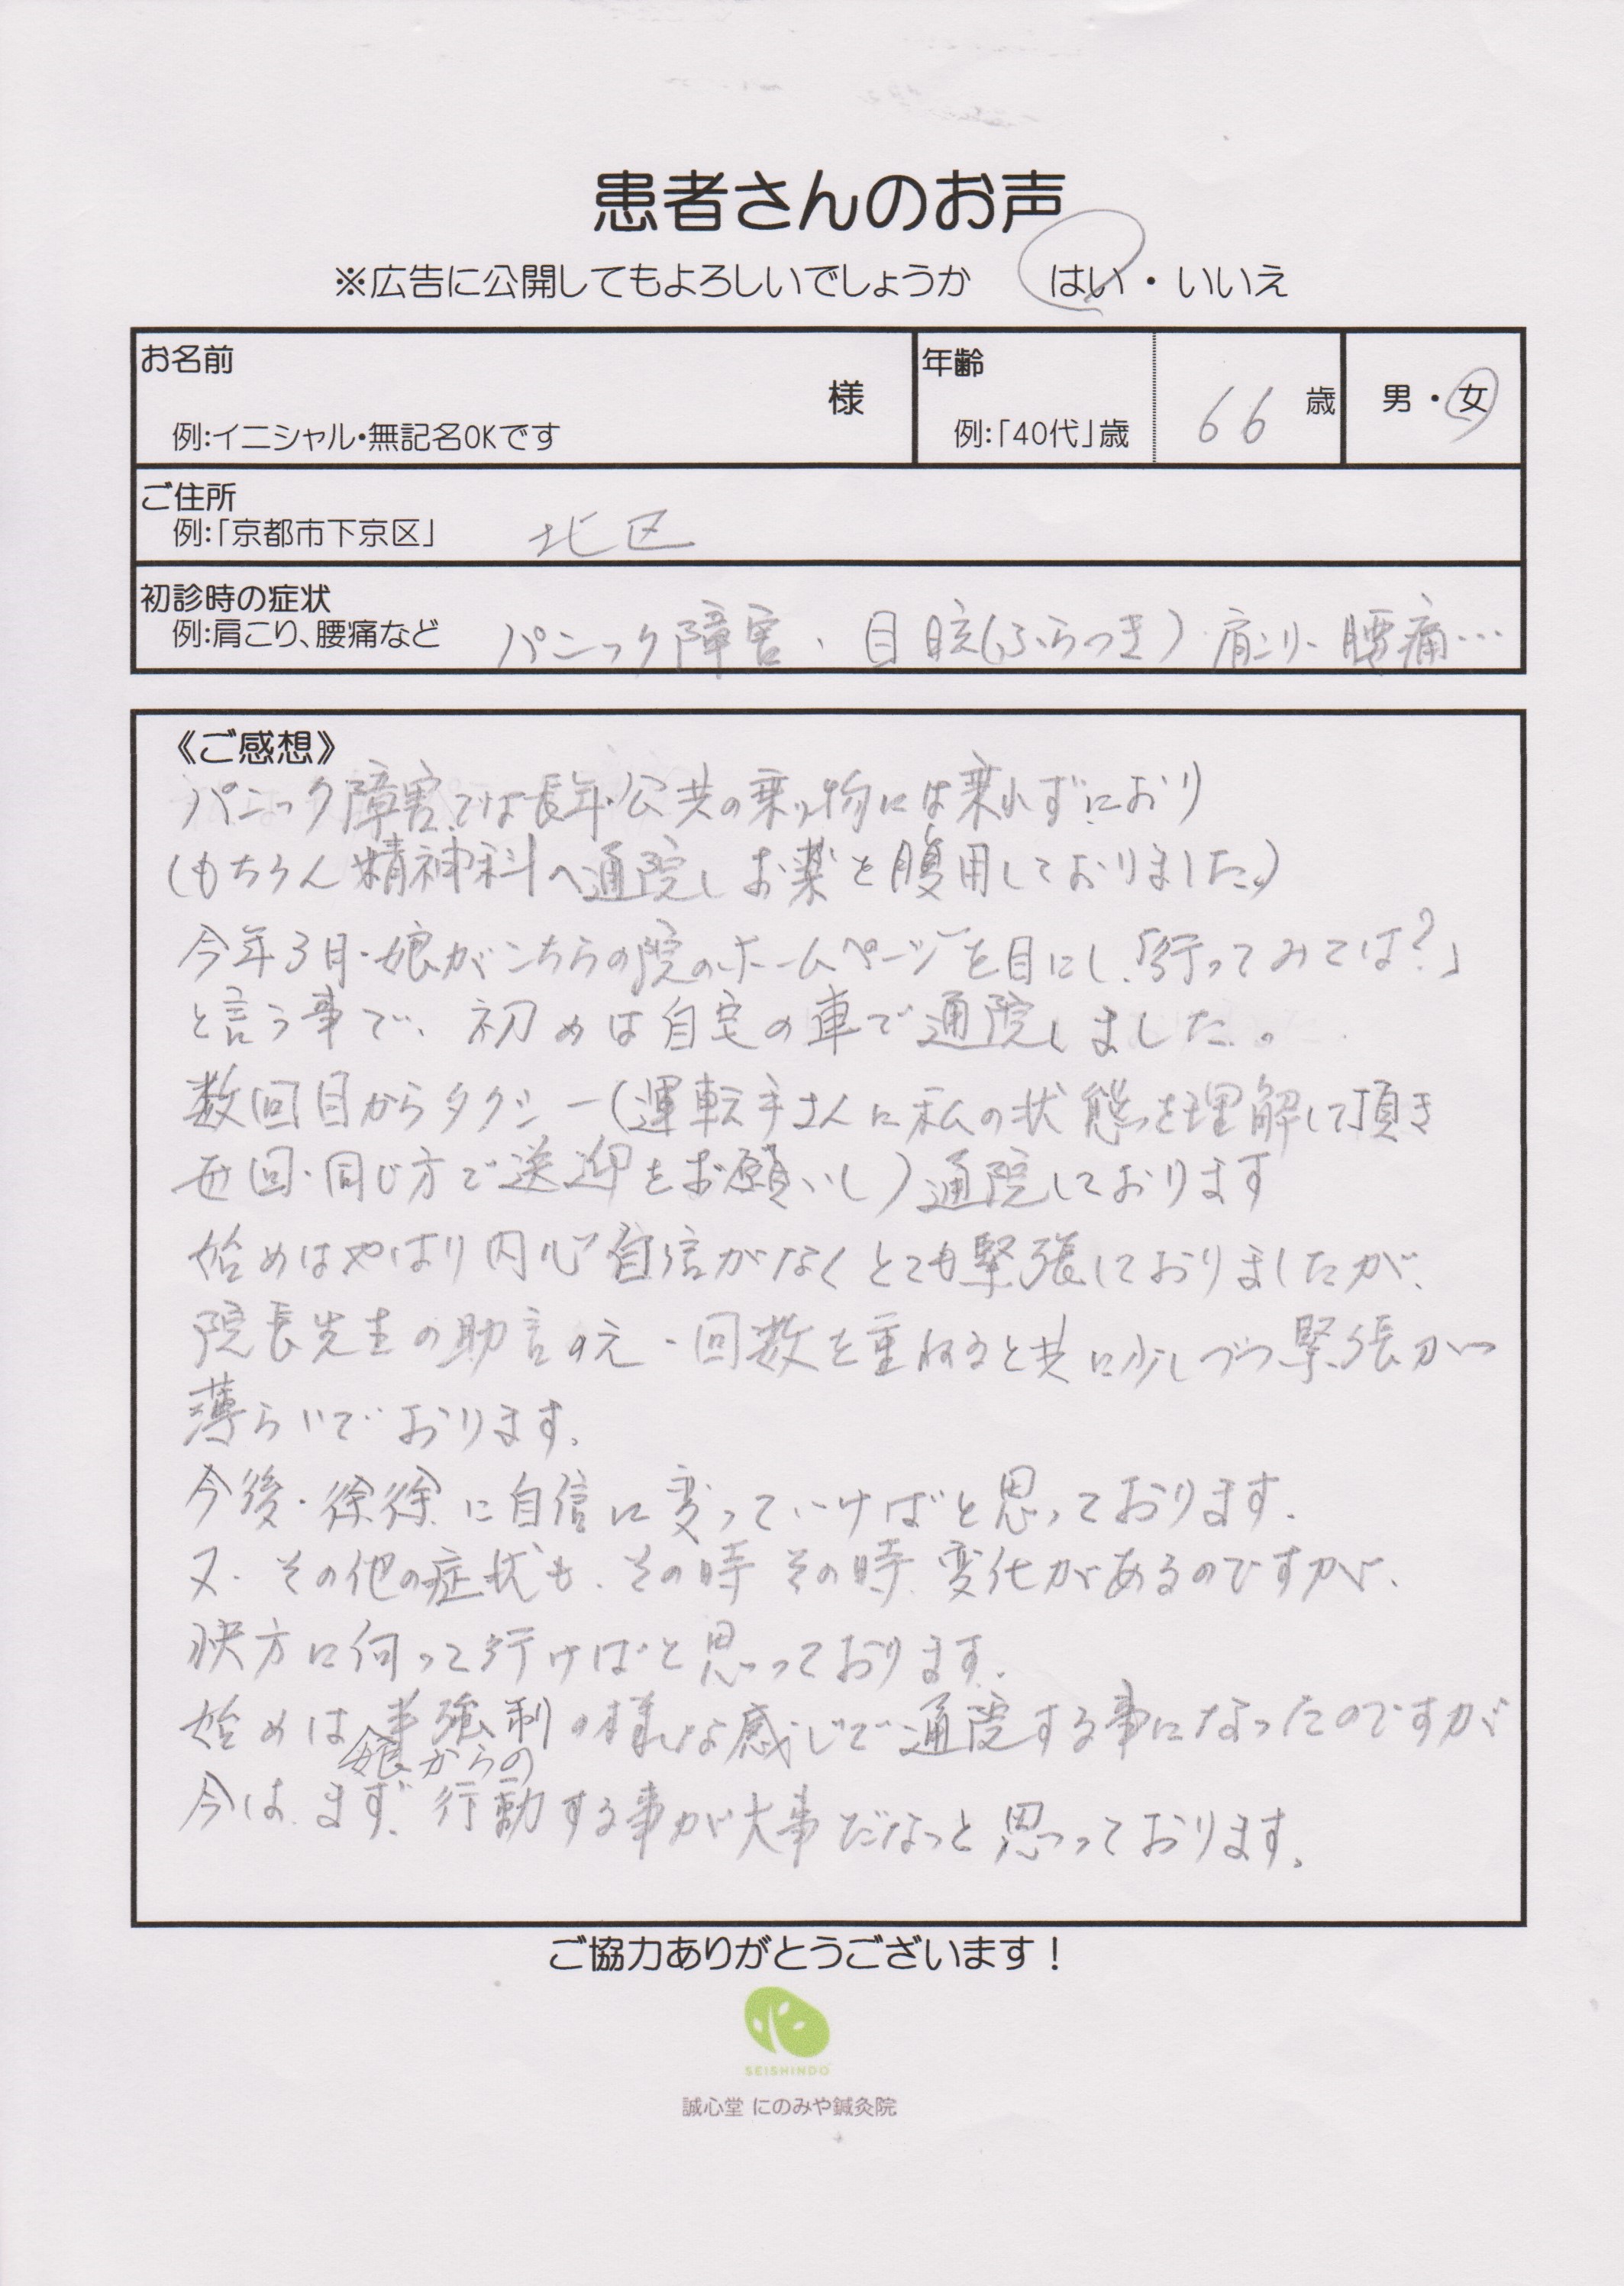 患者さんのお声
※広告に公開してもよろしいでしょうか はい・いいえ
お名前 様
例:イニシャル・無記名OKです
年齢
例:「40代」歳 66 歳
男・女
ご住所
例:「京都市下京区」 北区
初診時の症状
例:肩こり、腰痛など パニック障害、目眩(ふらつき)肩コリ、腰痛…
《ご感想》
パニック障害では長年、公共の乗り物には乗れずにおり
(もちろん精神科へ通院しお薬を腹用しておりました。)
今年3月、娘がこちらの院のホームページを目にし、「行ってみては?」
と言う事で、初めは自宅の車で通院しました。
数回目からタクシー(運転手さんに私の状態を理解して頂き
毎回、同じ方で送迎をお願いし)通院しております
始めはやはり内心自信がなくとても緊張しておりましたが、
院長先生の助言の元、回数を重ねると共に少しづつ緊張が
薄らいでおります。
今後、徐徐に自信に変っていけばと思っております。
又、その他の症状も、その時その時、変化があるのですが、
快方に向って行けばと思っております。
始めは半強制の様な感じで通院する事になったのですが
娘からの
今は、まず、行動する事が大事だなっと思っております。
ご協力ありがとうございます!
SEISHINDO
誠心堂 にのみや鍼灸院